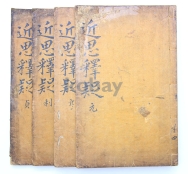 近思釋疑 元
近思釋疑
近思釋疑 利
近思釋疑 貞
KOBAY